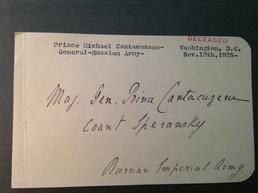 DECEASED
Prince Michael Cantacuzene- Washington, D.C.
General-Russian Army- Nov.12th,1925-
Maj. Gen. Prince Cantacuzene
Count Speransky
Russian Imperial Army